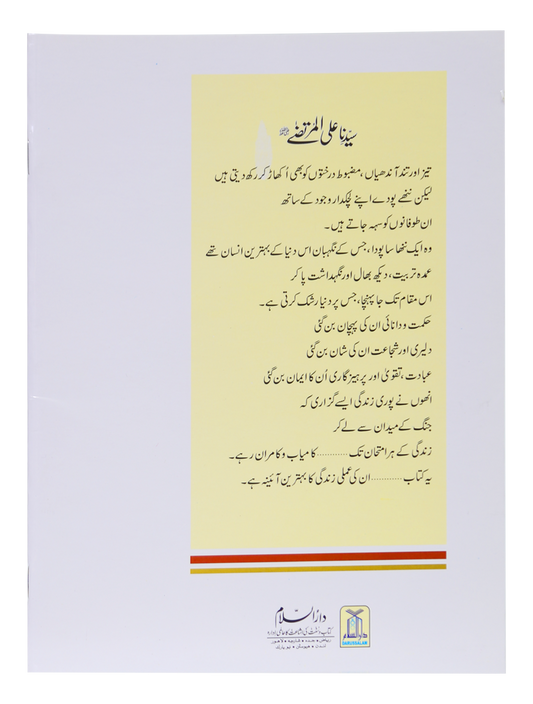 سیّدنا علی المرتضےٰ
تیز اور تند آندھیاں، مضبوط درختوں کو بھی اُکھاڑ کر رکھ دیتی ہیں
لیکن ننھے پودے اپنے لچکدار وجود کے ساتھ
ان طوفانوں کو سہہ جاتے ہیں۔
وہ ایک ننھا سا پودا، جس کے نگہبان اس دنیا کے بہترین انسان تھے
عمدہ تربیت، دیکھ بھال اور نگہداشت پا کر
اس مقام تک جا پہنچا، جس پر دنیا رشک کرتی ہے۔
حکمت و دانائی ان کی پہچان بن گئی
دلیری اور شجاعت ان کی شان بن گئی
عبادت، تقویٰ اور پرہیز گاری اُن کا ایمان بن گئی
انھوں نے پوری زندگی ایسے گزاری کہ
جنگ کے میدان سے لے کر
زندگی کے ہر امتحان تک ............ کامیاب و کامران رہے۔
یہ کتاب ............ ان کی عملی زندگی کا بہترین آئینہ ہے۔
دارُالسلام
کتاب و سنت کی اشاعت کا عالمی ادارہ
ریاض • جدہ • شارجہ • لاہور
لندن • ہیوسٹن • نیویارک
دارالسلام
DARUSSALAM